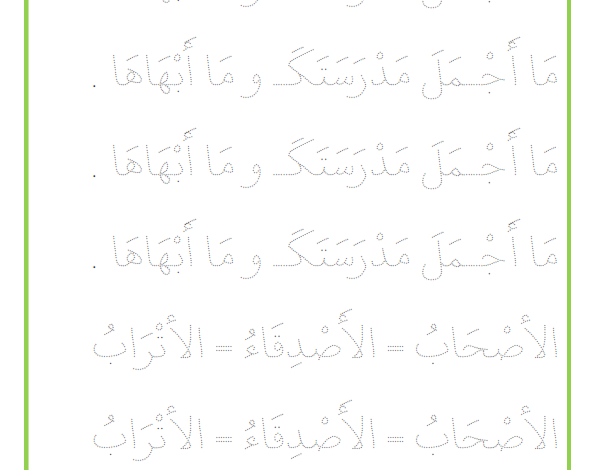 مَا أَجْـمَـلَ مَدْرَسَتَـكَ و مَا أَبْهَاهَا .
مَا أَجْـمَـلَ مَدْرَسَتَـكَ و مَا أَبْهَاهَا .
مَا أَجْـمَـلَ مَدْرَسَتَـكَ و مَا أَبْهَاهَا .
الأَصْحَابُ = الأَصْدِقَاءُ = الأَتْرَابُ
الأَصْحَابُ = الأَصْدِقَاءُ = الأَتْرَابُ